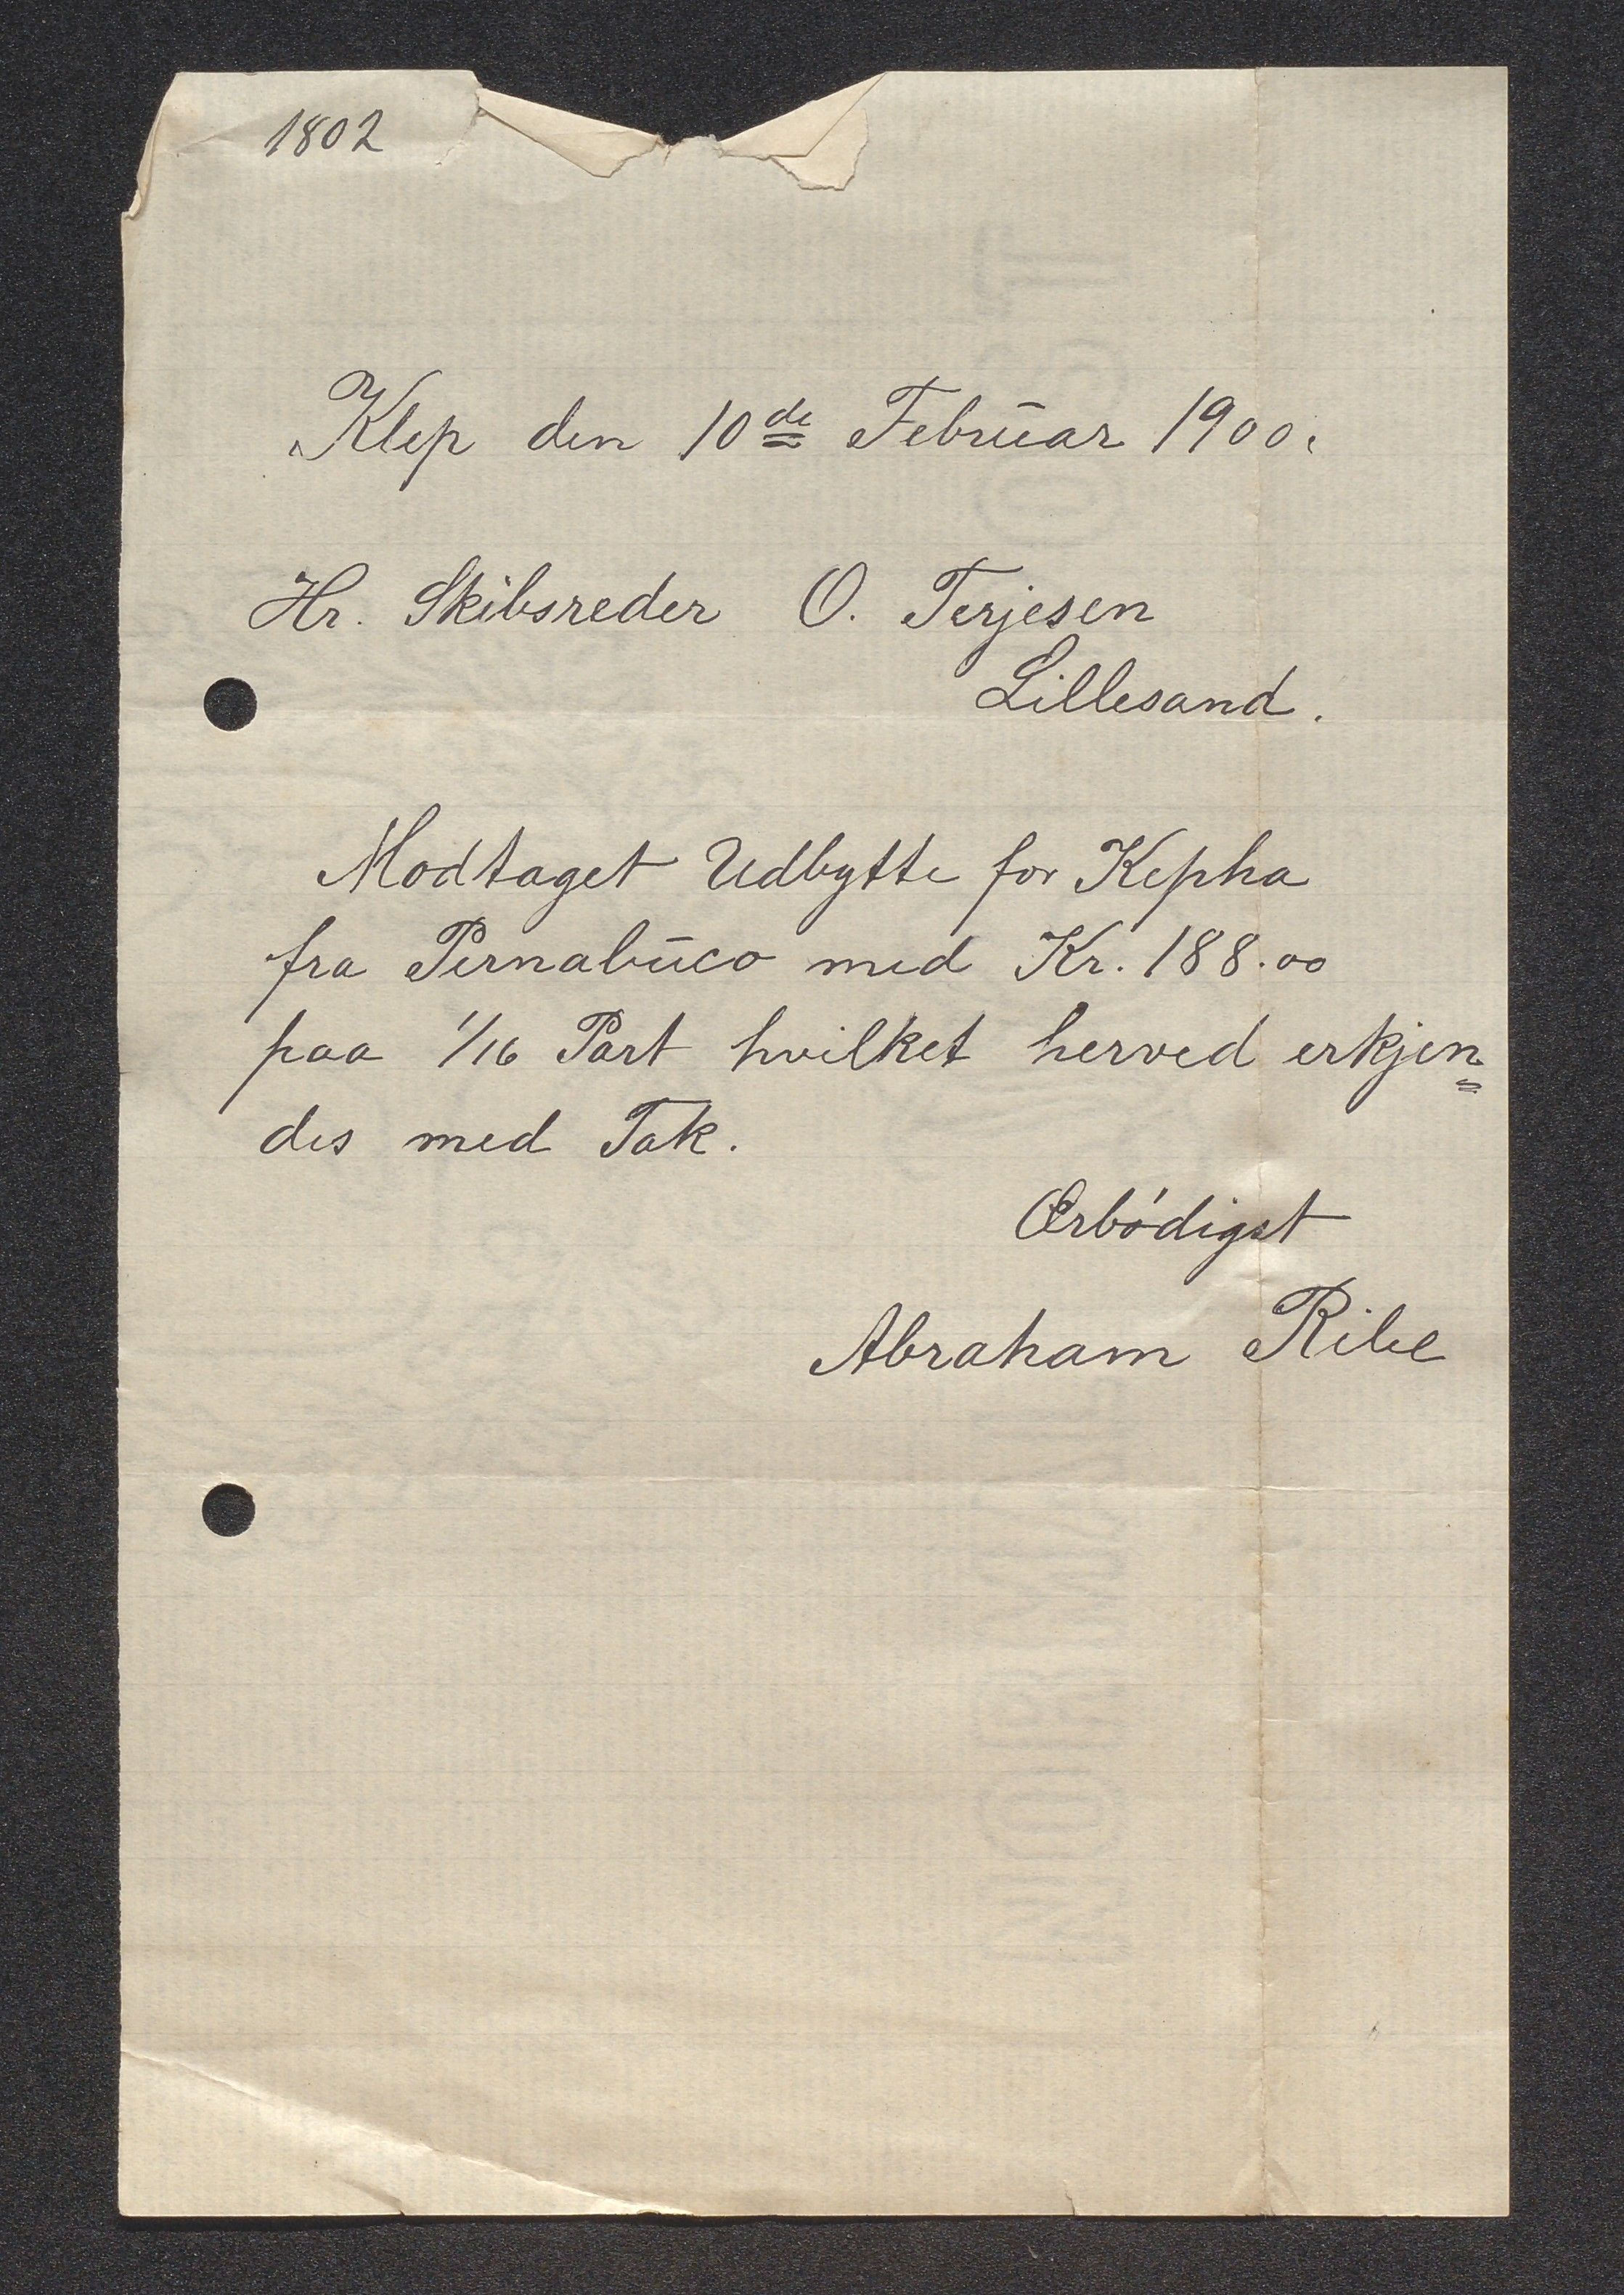 1802
Klep den 10de Februar 1900.
Hr. Skibsreder O. Terjesen
Lillesand.
Modtaget Udbytte for Kepha
fra Pernabuco med Kr. 188.00
paa 1/16 Part hvilket herved erkjen=
des med Tak.
Ærbødigst
Abraham Ribe
NORMAL POST